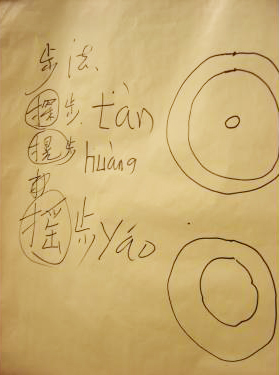 步法.
探步. tàn
晃步 huàng
摇步 yáo